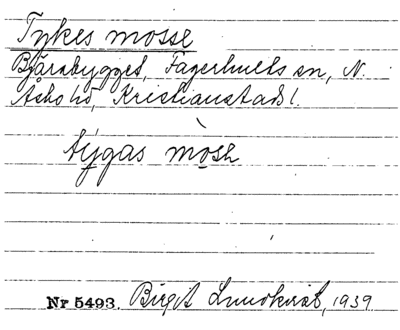 Tykes mosse
Bjärabygget, Fagerhults sn, N.
Åsbo hd, Kristianstads l.
tygas mosse
Nr 5493. Birgit Lundkvist, 1939